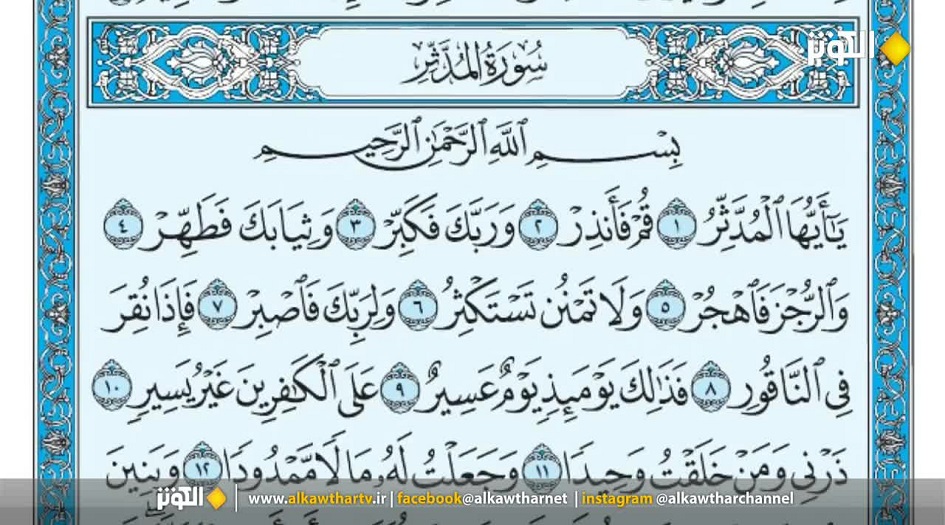 الكوثر
سُورَةُ المُدَّثِّر
بِسْمِ ٱللَّهِ ٱلرَّحْمَٰنِ ٱلرَّحِيمِ
يَٰٓأَيُّهَا ٱلْمُدَّثِّرُ ١ قُمْ فَأَنذِرْ ٢ وَرَبَّكَ فَكَبِّرْ ٣ وَثِيَابَكَ فَطَهِّرْ ٤
وَٱلرُّجْزَ فَٱهْجُرْ ٥ وَلَا تَمْنُن تَسْتَكْثِرُ ٦ وَلِرَبِّكَ فَٱصْبِرْ ٧ فَإِذَا نُقِرَ
فِى ٱلنَّاقُورِ ٨ فَذَٰلِكَ يَوْمَئِذٍ يَوْمٌ عَسِيرٌ ٩ عَلَى ٱلْكَٰفِرِينَ غَيْرُ يَسِيرٍ ١٠
ذَرْنِى وَمَنْ خَلَقْتُ وَحِيدًا ١١ وَجَعَلْتُ لَهُۥ مَالًا مَّمْدُودًا ١٢ وَبَنِينَ
الكوثر www.alkawthartv.ir | facebook@alkawtharnet | instagram @alkawtharchannel